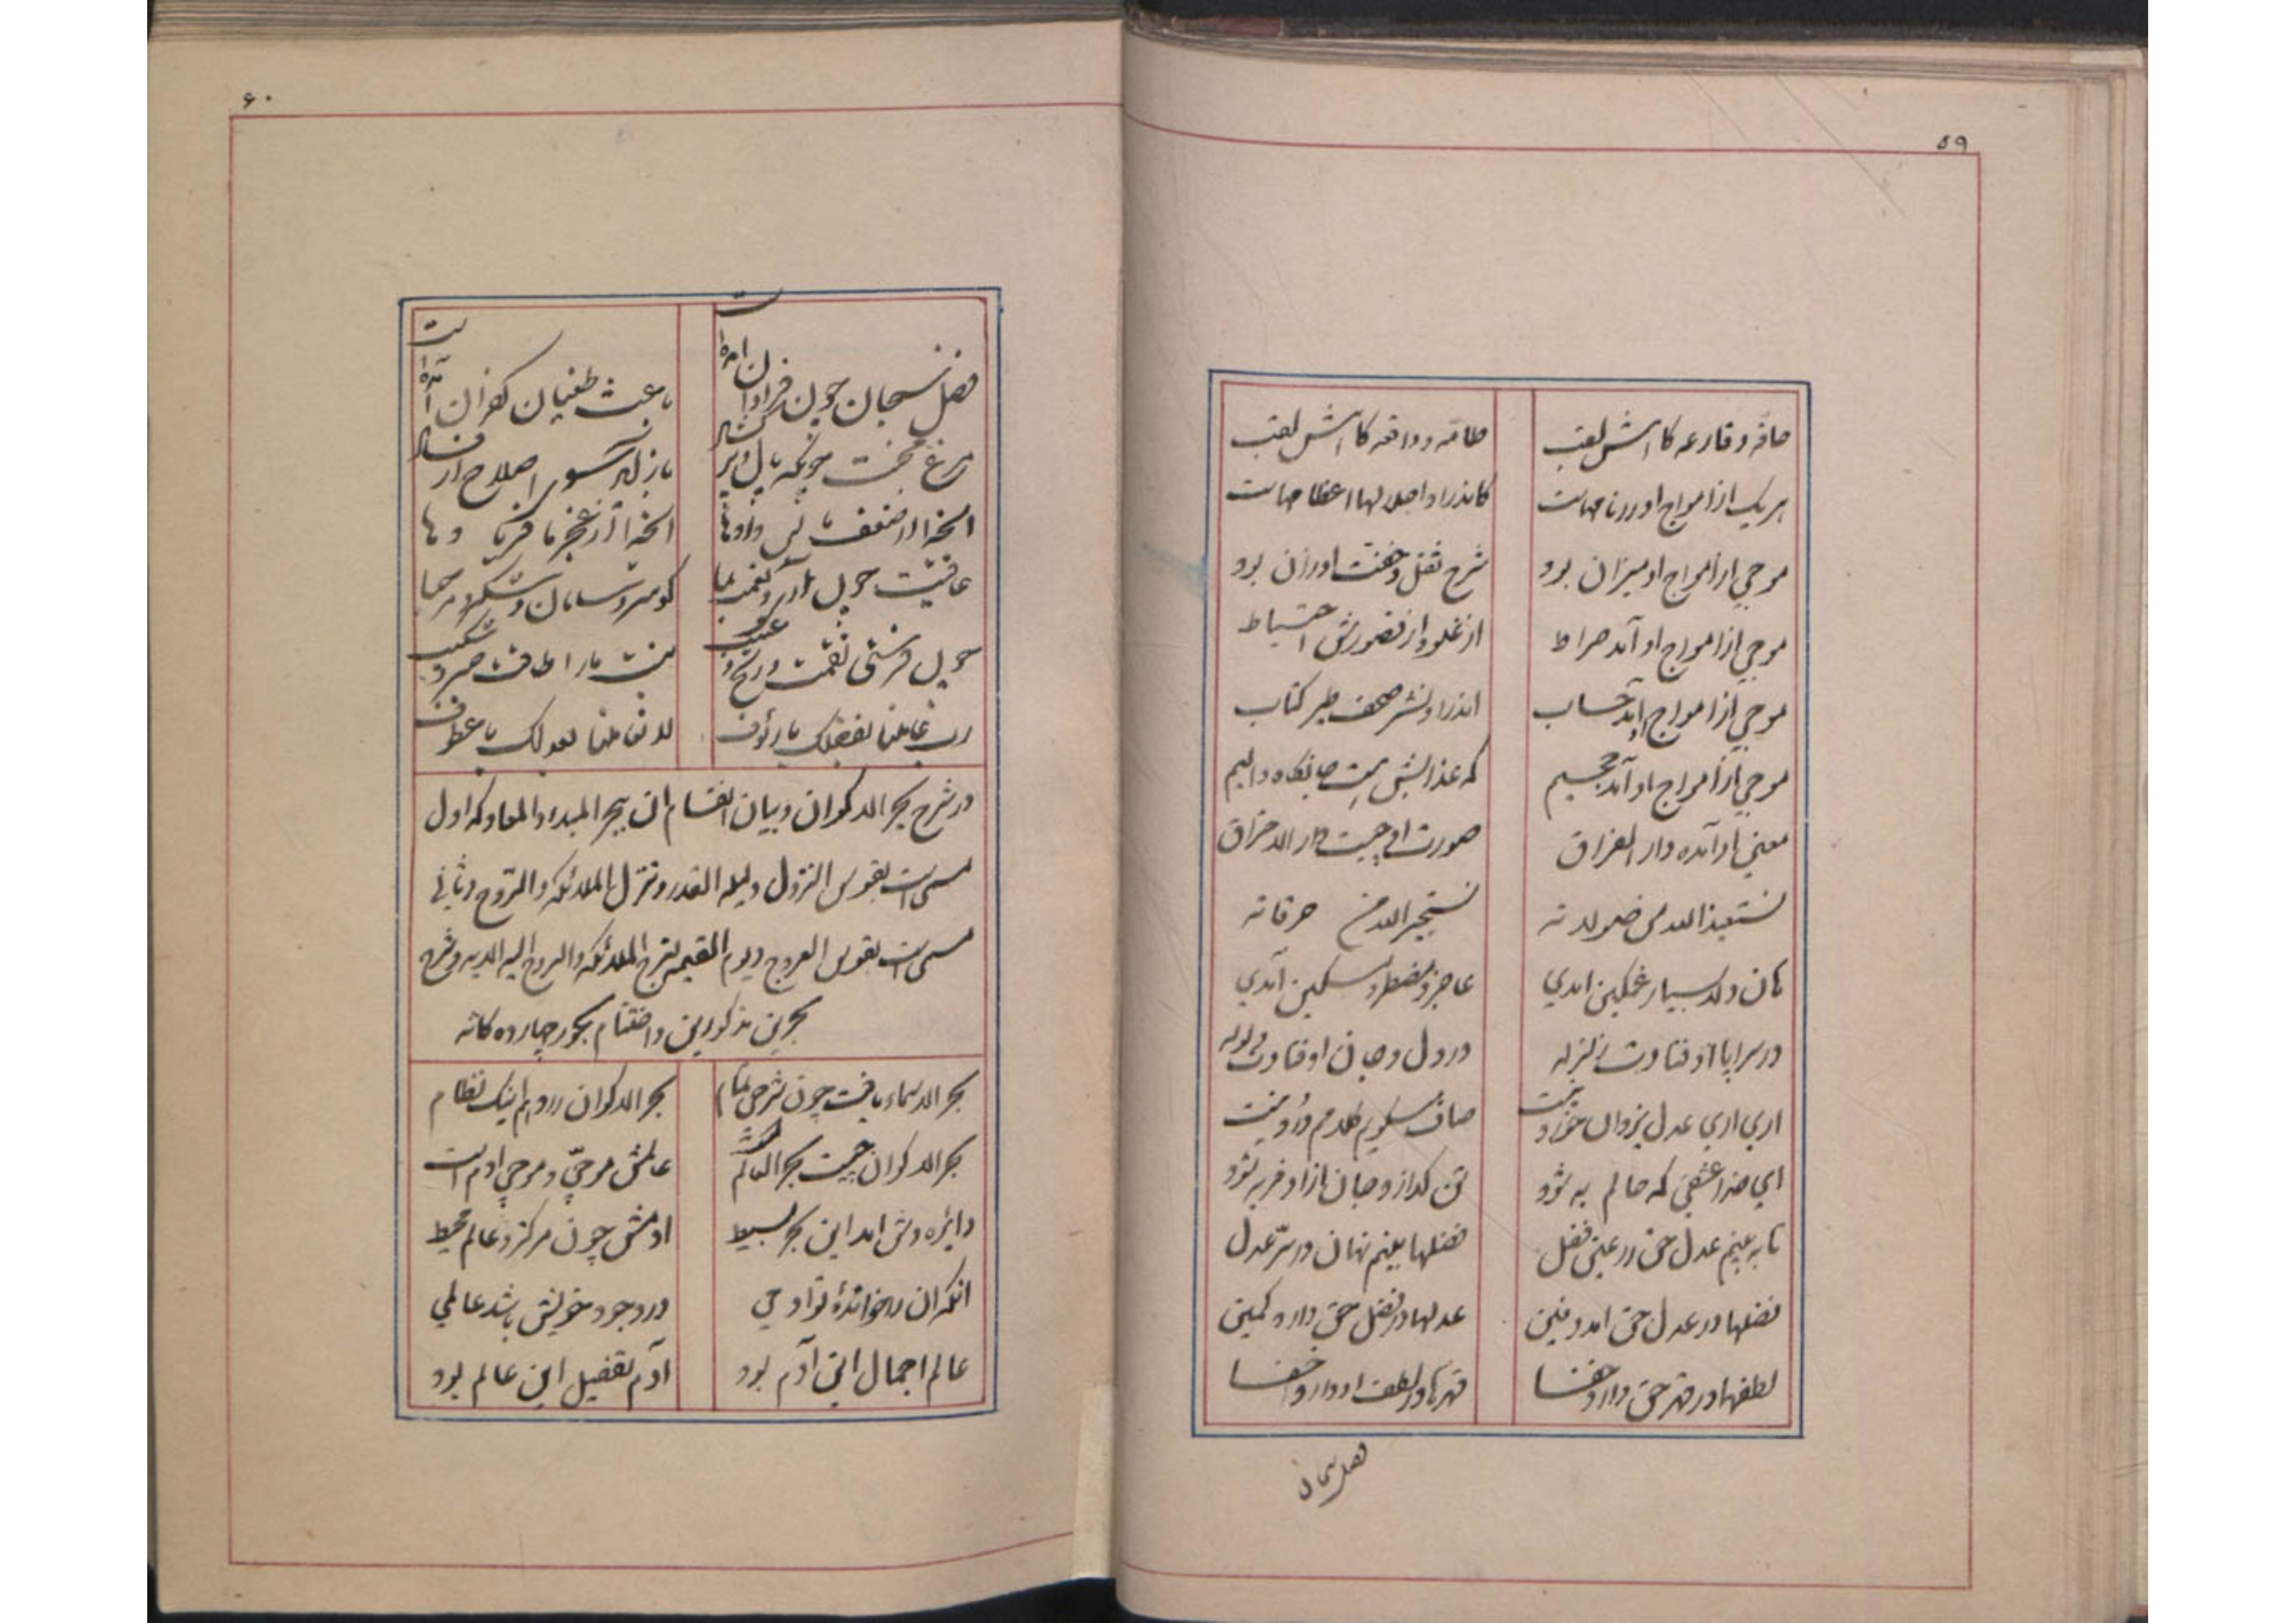 ۵۹
حاقه و قارعه کامدش لقب
طامه و واقعه کامدش لقب
هر یک از امواج او دریا مهاست
کاندر او اهوالها اعظامهاست
موجی از امواج او میزان بود
شرح ثقل و خفت اوزان بود
موجی از امواج او آمد صراط
از غلو و از قصورش احتیاط
موجی از امواج او آمد حساب
اندر او نشر صحف طیر کتاب
موجی از امواج او آمد جحیم
که عذابش هست جانکاه و الیم
معنی او آمده دار الفراق
صورت او چیست دار الاحتراق
نستعیذ الله من صولاته
نستجیر الله من حرقاته
هان دلا بسیار غمگین آمدی
عاجز و مضطر و مسکین آمدی
در سراپا اوفتادت زلزله
در دل و جان اوفتادت ولوله
اری اری عدل یزدان
صاف میگویم کلامم درد نیست
ای خدا عشقی که حالم به شود
تن گدازد جان ازاد فربه شود
تا به بینم عدل حق در عین فضل
فضلها بینم نهان در سر عدل
فضلها در عدل حق آمد دفین
عدلها در فضل حق دارد کمین
لطفها در قهر حق دارد خفا
قهرها در لطف او دارد خفا
فضل سبحان
۶۰
فضل سبحان چون فراوان امده است
باعث طغیان کفران آمده است
مرغ بخت چونکه بال و پر
باز اصلاح ار
عافیت چون
کو سر و سامان و شکر و مرحبا
چون فرستی نقمت و رنج و
نیست ما را طاقت صبر و شکیب
رب عاملنا بفضلک یا رئوف
لا تعاملنا بعدلک یا عطوف
در شرح بحر الاکوان و بیان انقسام ان ببحر المبدء و المعاد که اول
مسمی است بقوس النزول و لیله القدر و تنزل الملائکه و الروح و ثانی
مسمی است بقوس العروج و یوم القیمه تعرج الملائکه و الروح الیه الایه و شرح
بحرین مذکورین و اختتام بحور چهارده کانه
بحر الاسماء یافت چون شرحی تمام
بحر الاکوان را دهم اینک نظام
بحر الاکوان چیست بحر العالم
عالمش موجی و موجی ادم است
دایره وش امد این بحر بسیط
ادمش چون مرکز و عالم محیط
انکه ان را خوانده تو ادمی
در وجود خویش باشد عالمی
عالم اجمال این آدم بود
آدم تفصیل این عالم بود